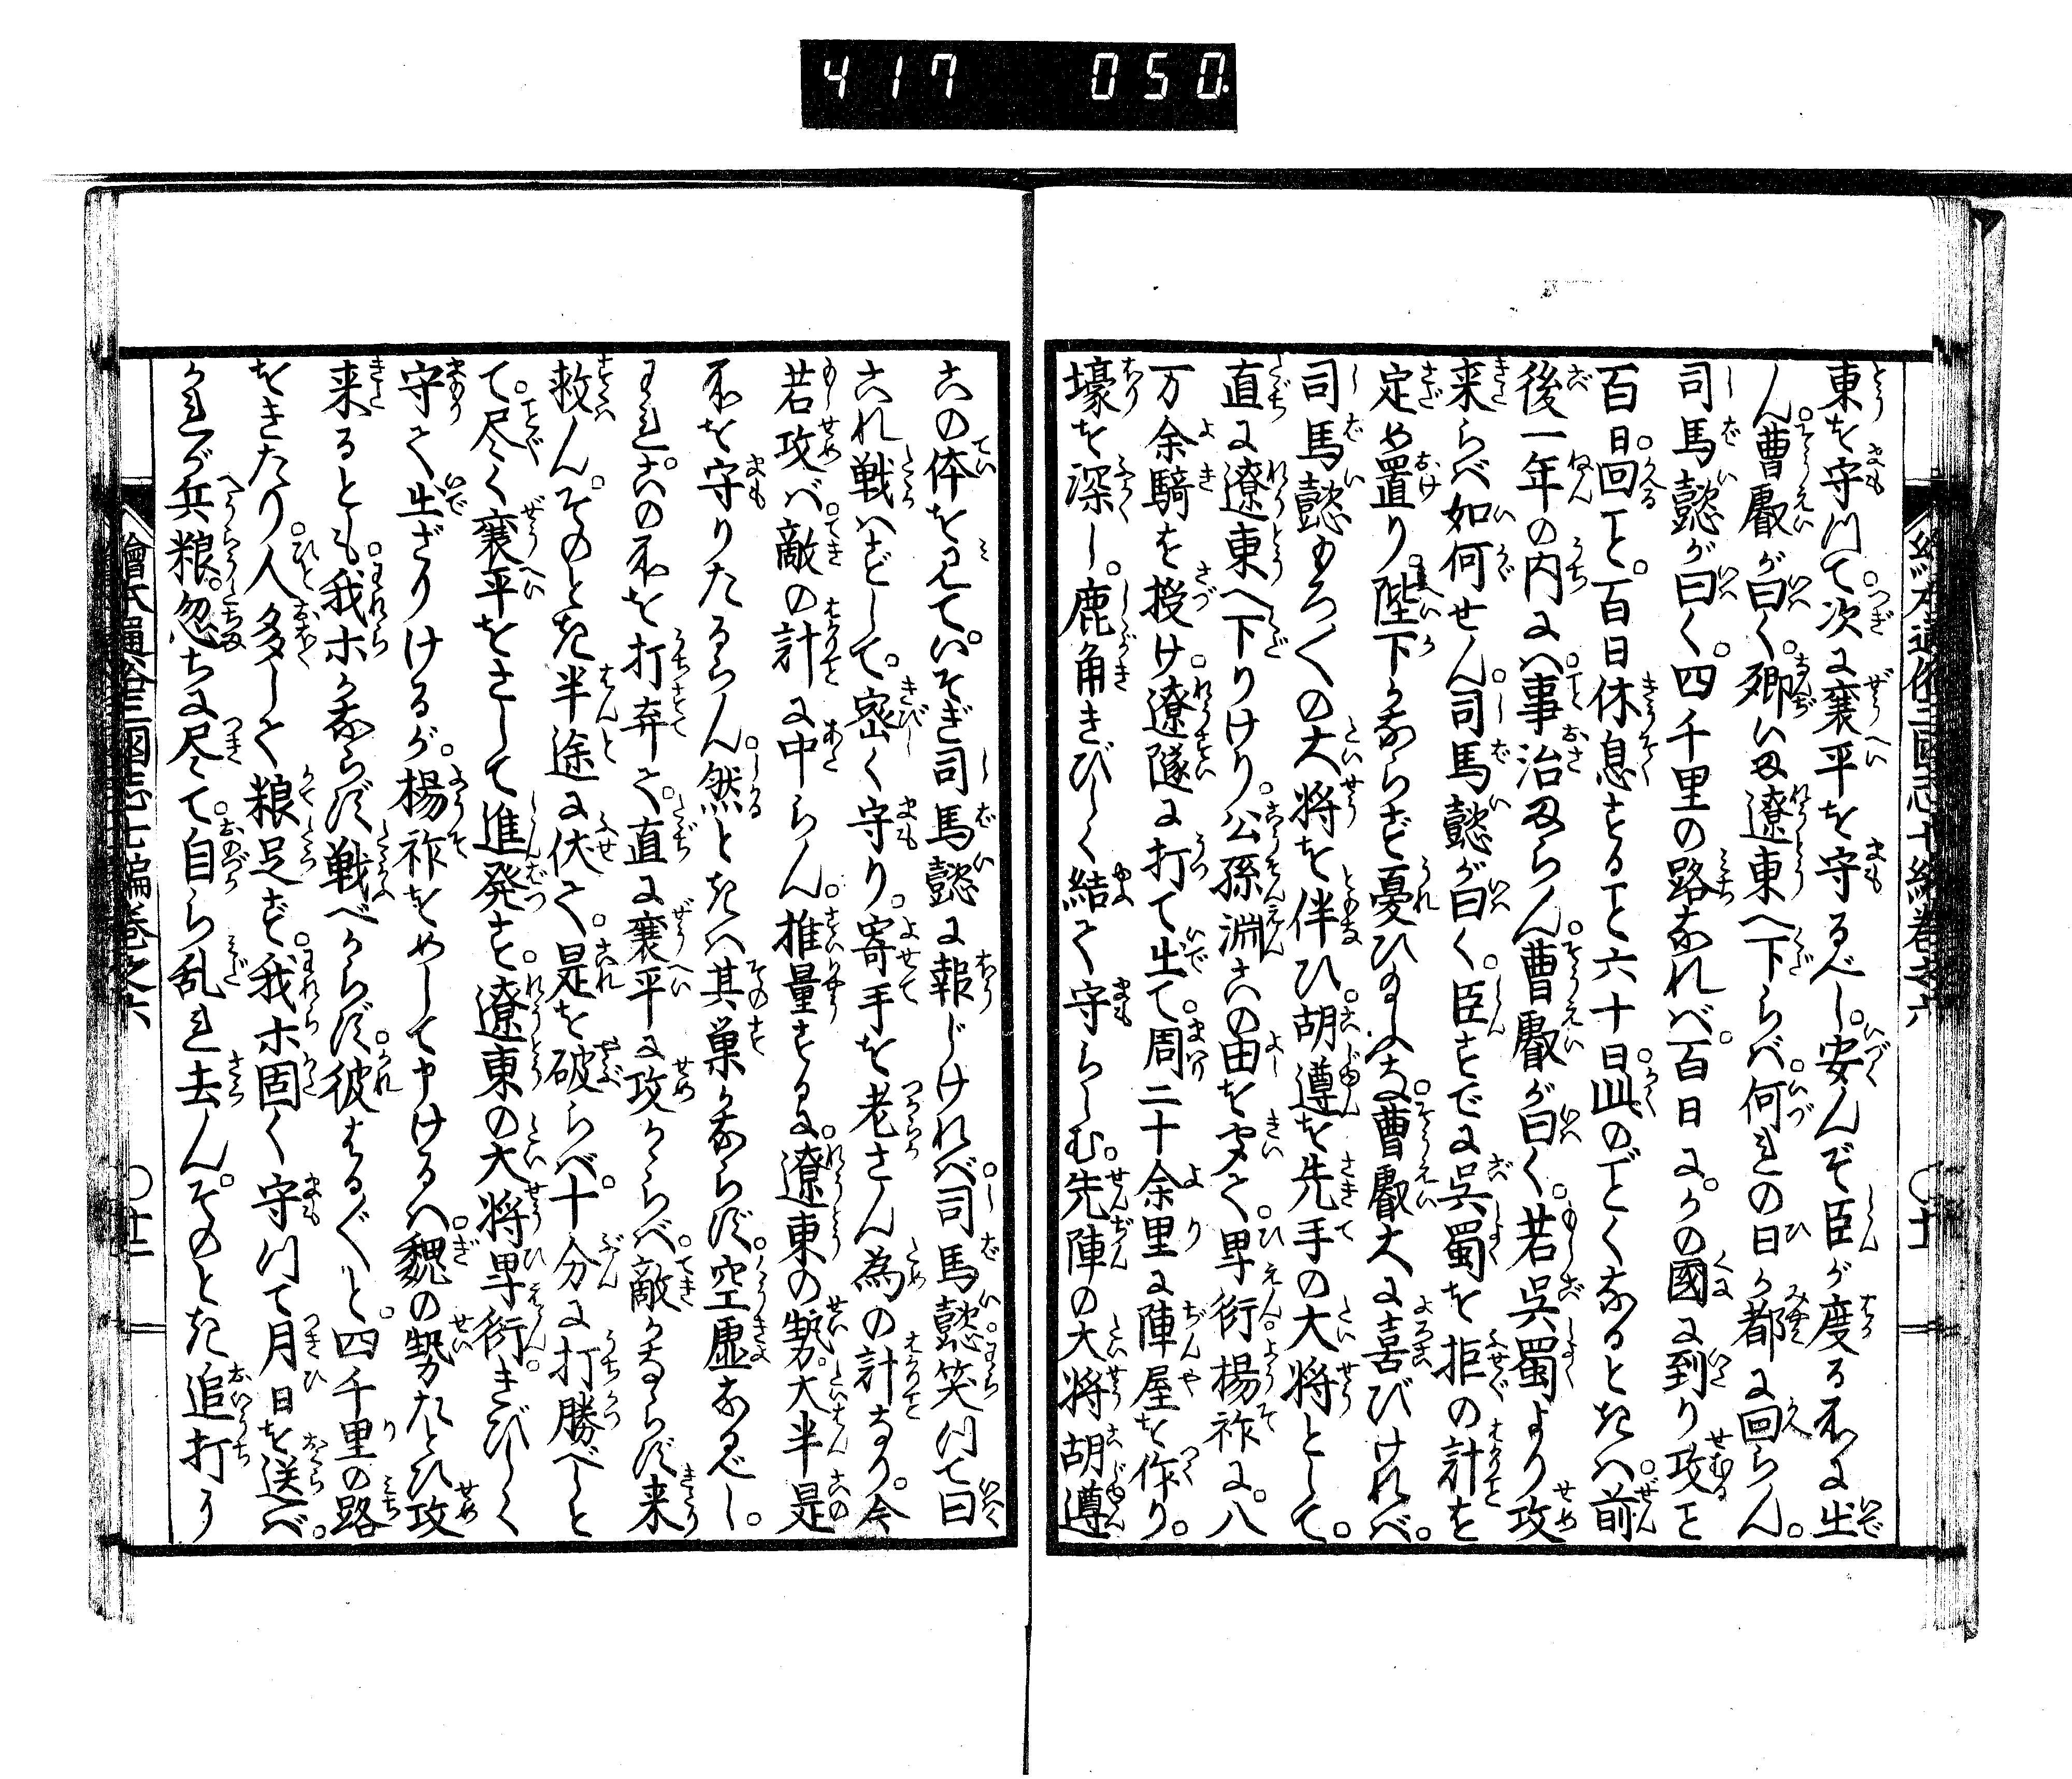 417 050
東を守りて次に襄平を守るべし。安んぞ臣が度る所に出
ん。曹叡が曰く。卿いま遼東へ下らば。何れの日か都に回らん。
司馬懿が曰く。四千里の路なれば。百日にかの國に到り攻こと
百日。回こと。百日休息することと六十日。此のごとくなるときは。前
後一年の内には。事治まらん。曹叡が曰く。若呉蜀より攻
来らば如何せん。司馬懿が曰く。臣すでに呉蜀を拒の計を
定め置り。陛下かならず憂ひ給ふな。曹叡大に喜びければ。
司馬懿もろ〳〵の大将を伴ひ。胡遵を先手の大将として。
直に遼東へ下りけり。公孫淵此の由を聞て。卑衍楊祚に。八
万余騎を授け。遼隧に打て出て。周二十余里に陣屋を作り。
壕を深し。鹿角きびしく結て守らしむ。先陣の大将胡遵
此の体を見て。いそぎ司馬懿に報じければ。司馬懿笑つて曰
これ戦はずして。密く守り。寄手を老さん為の計なり。今
若攻ば。敵の計に中らん。推量するに。遼東の勢。大半是
所を守りたるらん。然ときは其巣かならず。空虚なるべし。
われ。此の所を打弃て。直に襄平に攻かゝらば。敵かならず来
救ん。そのとき半途に伏て。是を破らば。十分に打勝べしと
て。尽く襄平をさして進発す。遼東の大将卑衍。きびしく
守て出ざりけるが。楊祚をめして申けるは。魏の勢たとひ攻
来るとも。我ホかならず戦べからず。彼はる〴〵と。四千里の路
をきたり。人多して粮足ず。我ホ固く守つて月日を送べ。
かれが兵粮。忽ちに尽て。自ら乱れ去ん。そのとき追打う
繪本通俗三國志七編巻之六
〇十一
繪本通俗三國志七編巻之六
〇十二